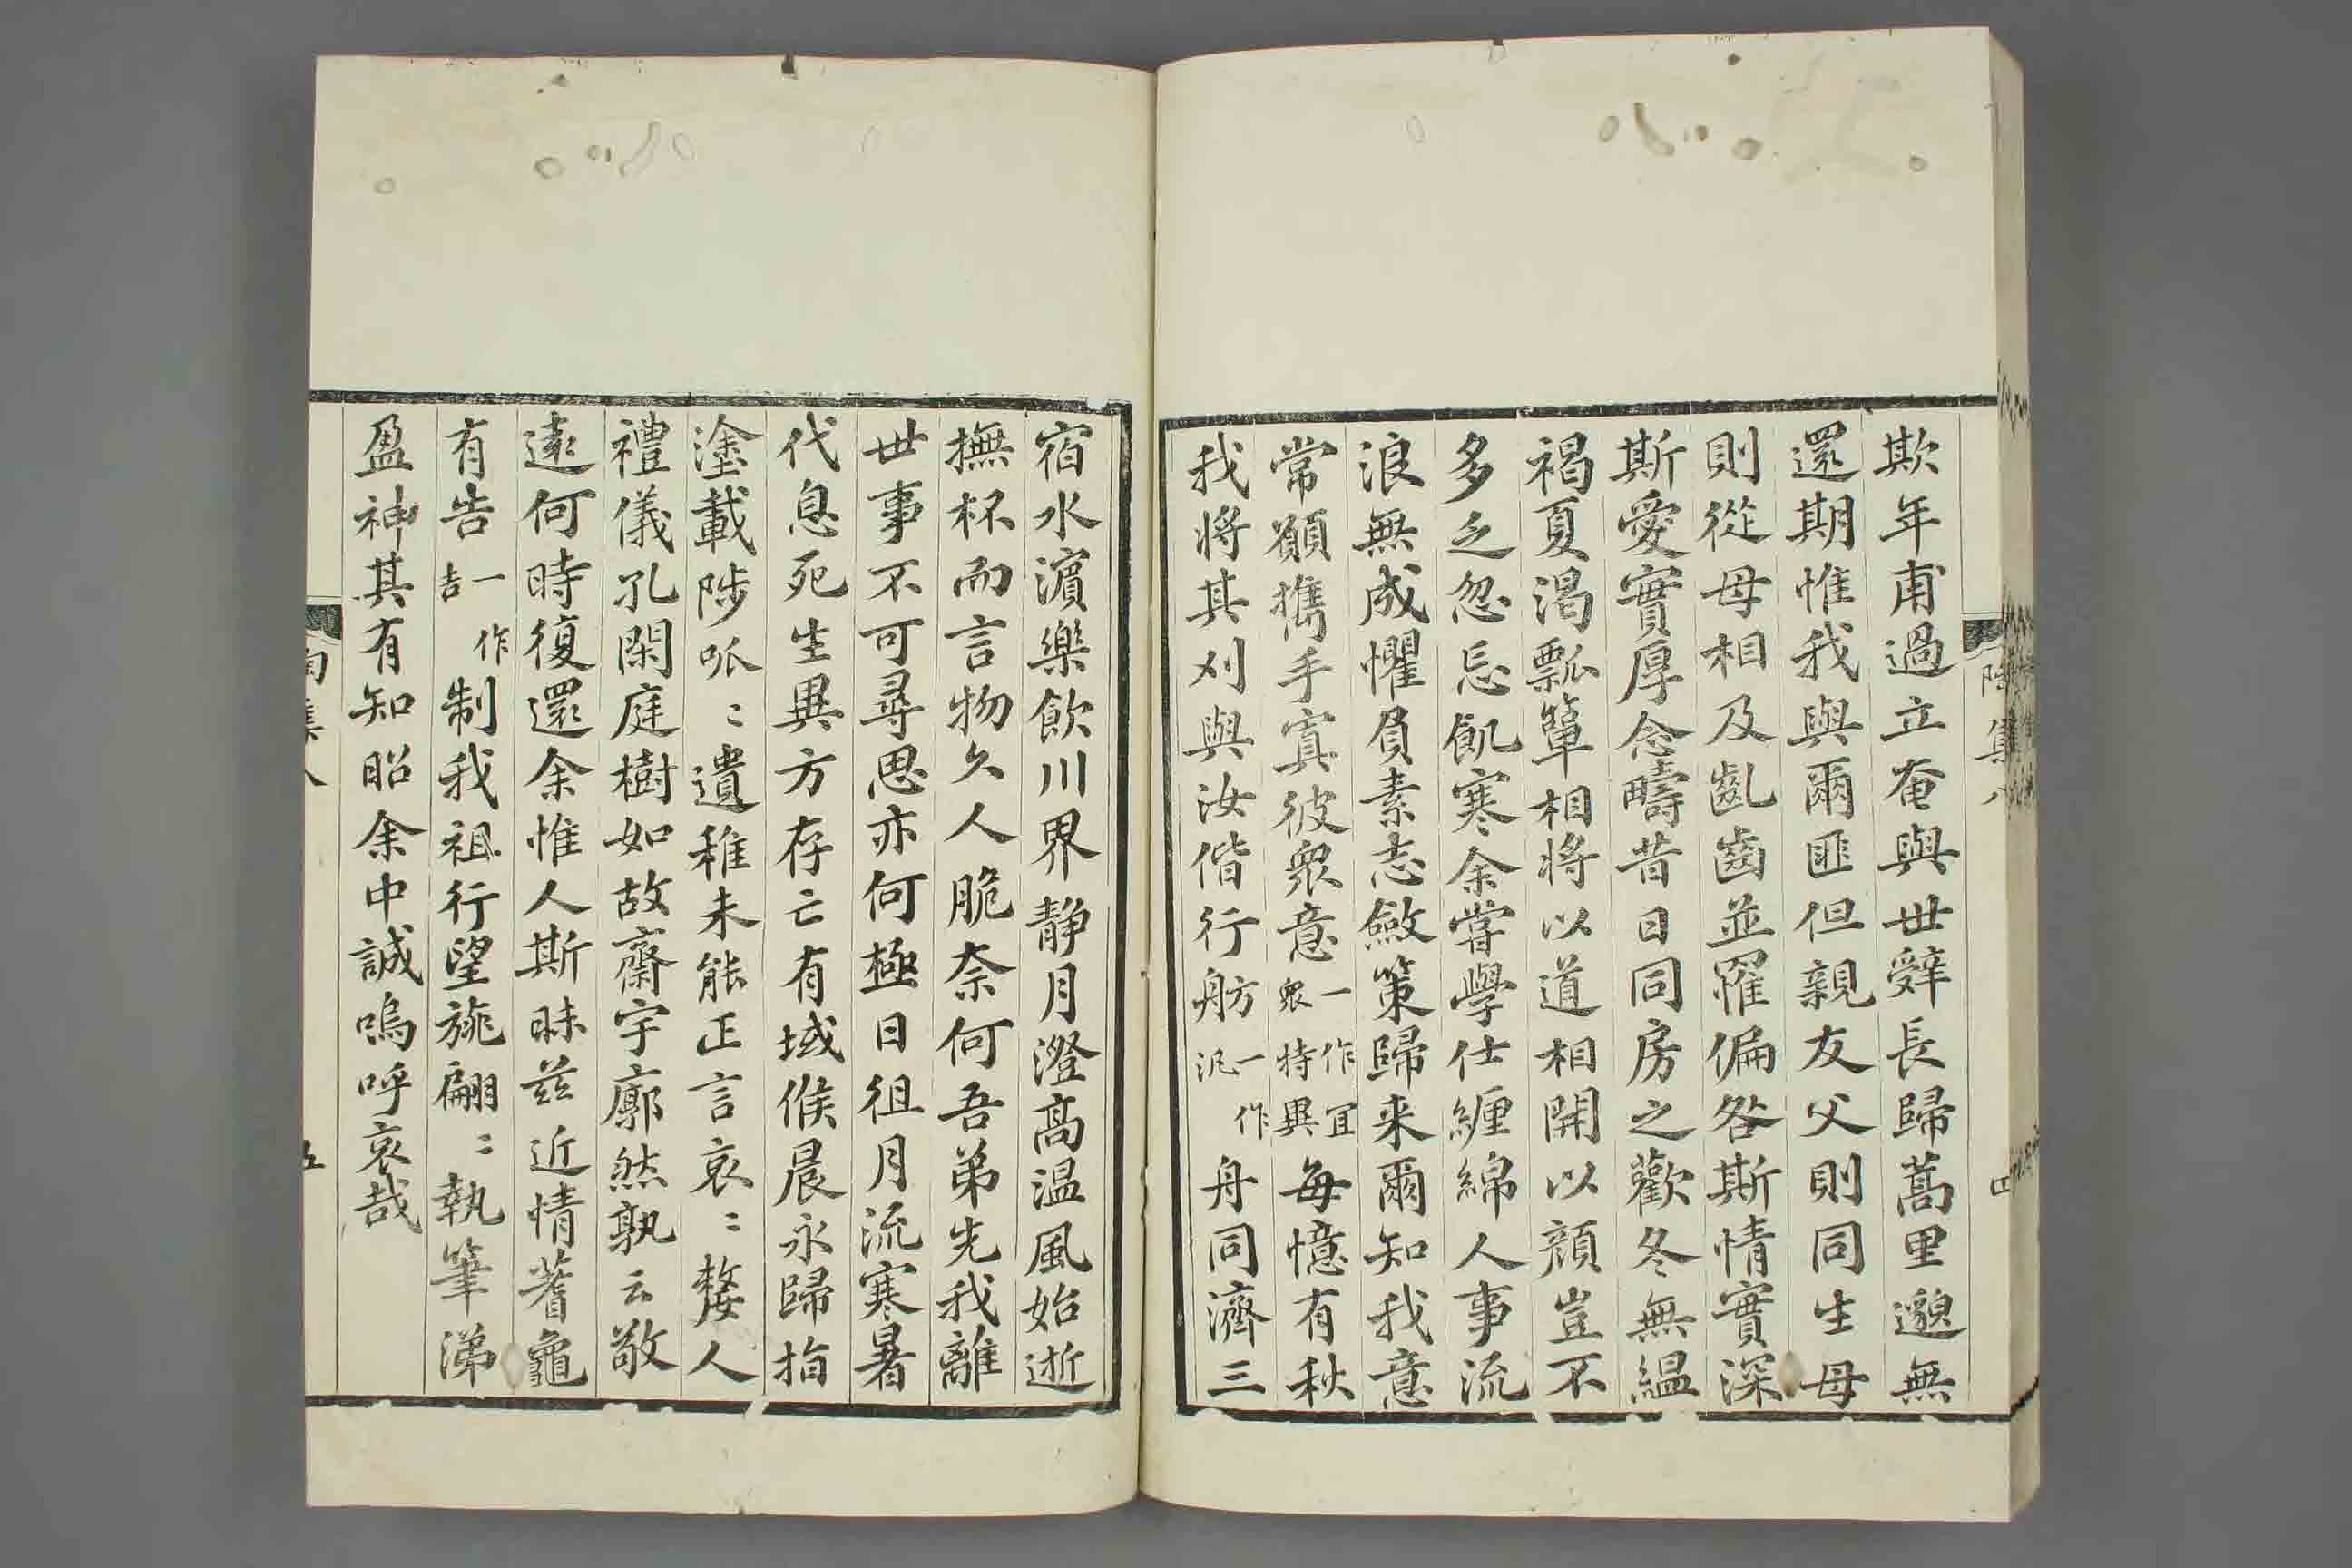 欺年甫過立奄與世辤長歸蒿里邈無
還期惟我與爾匪但親友父則同生母
則從母相及齓齒並罹偏咎斯情實深
斯愛實厚念疇昔日同房之歡冬無緼
褐夏渴瓢簞相將以道相開以顔豈不
多乏忽忘飢寒余甞學仕纏綿人事流
浪無成懼負素志斂策歸来爾知我意
常願攜手寘彼衆意一作冝衆特異每憶有秋
我將其刈與汝偕行舫一作汎舟同濟三
宿水濵樂飲川界静月澄高温風始逝
撫杯而言物久人脆奈何吾弟先我離
世事不可尋思亦何極日徂月流寒暑
代息死生異方存亡有域候晨永歸指
塗載陟呱〻遺稚未能正言哀〻嫠人
禮儀孔閑庭樹如故齋宇廓然孰云敬
遠何時復還余惟人斯昧兹近情蓍龜
有告一作吉制我祖行望旐翩〻執筆涕
盈神其有知昭余中誠嗚呼哀哉
陶集八
四
陶集八
五